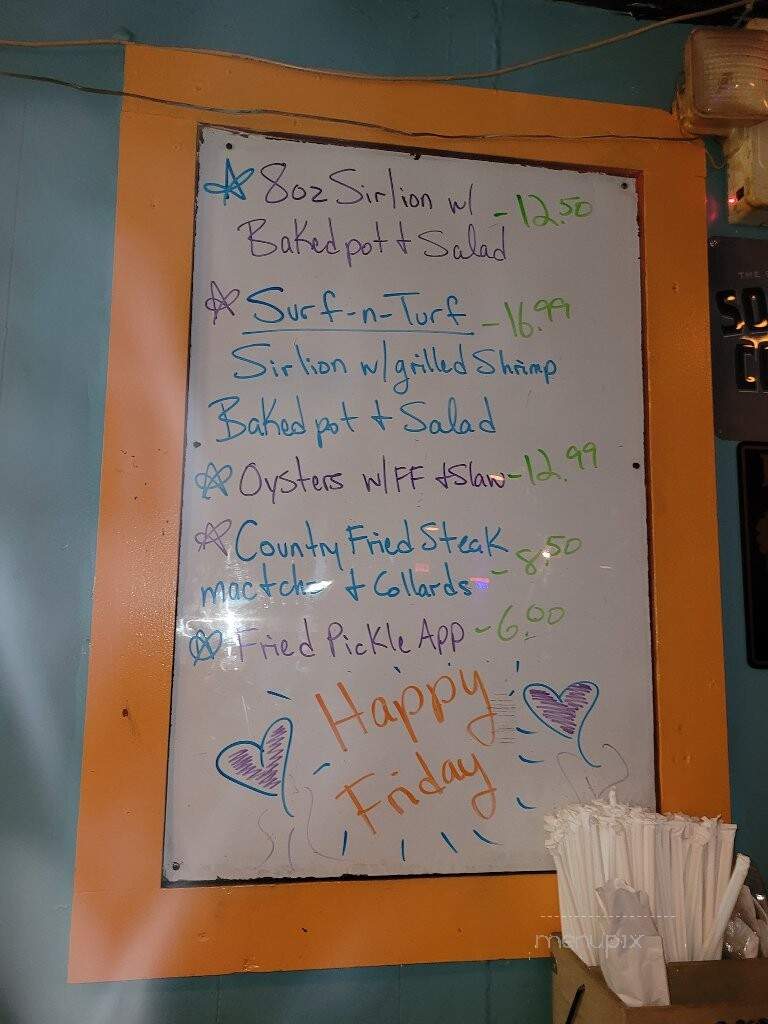 8oz Sirlion w/ - 12.50
Baked pot + Salad
Surf-n-Turf - 16.99
Sirlion w/grilled Shrimp
Baked pot + Salad
Oysters w/FF + Slaw - 12.99
Country Fried Steak - 8.50
mac + ch + Collards
Fried Pickle App - 6.00
Happy
Friday
THE
menupix